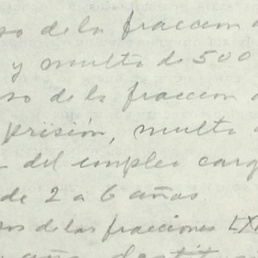 so de la fraccion
y multa de 500
so de la fraccion
prisión, multa
del empleo cargo
de 2 a 6 años
sos de las fracciones LXX
destit